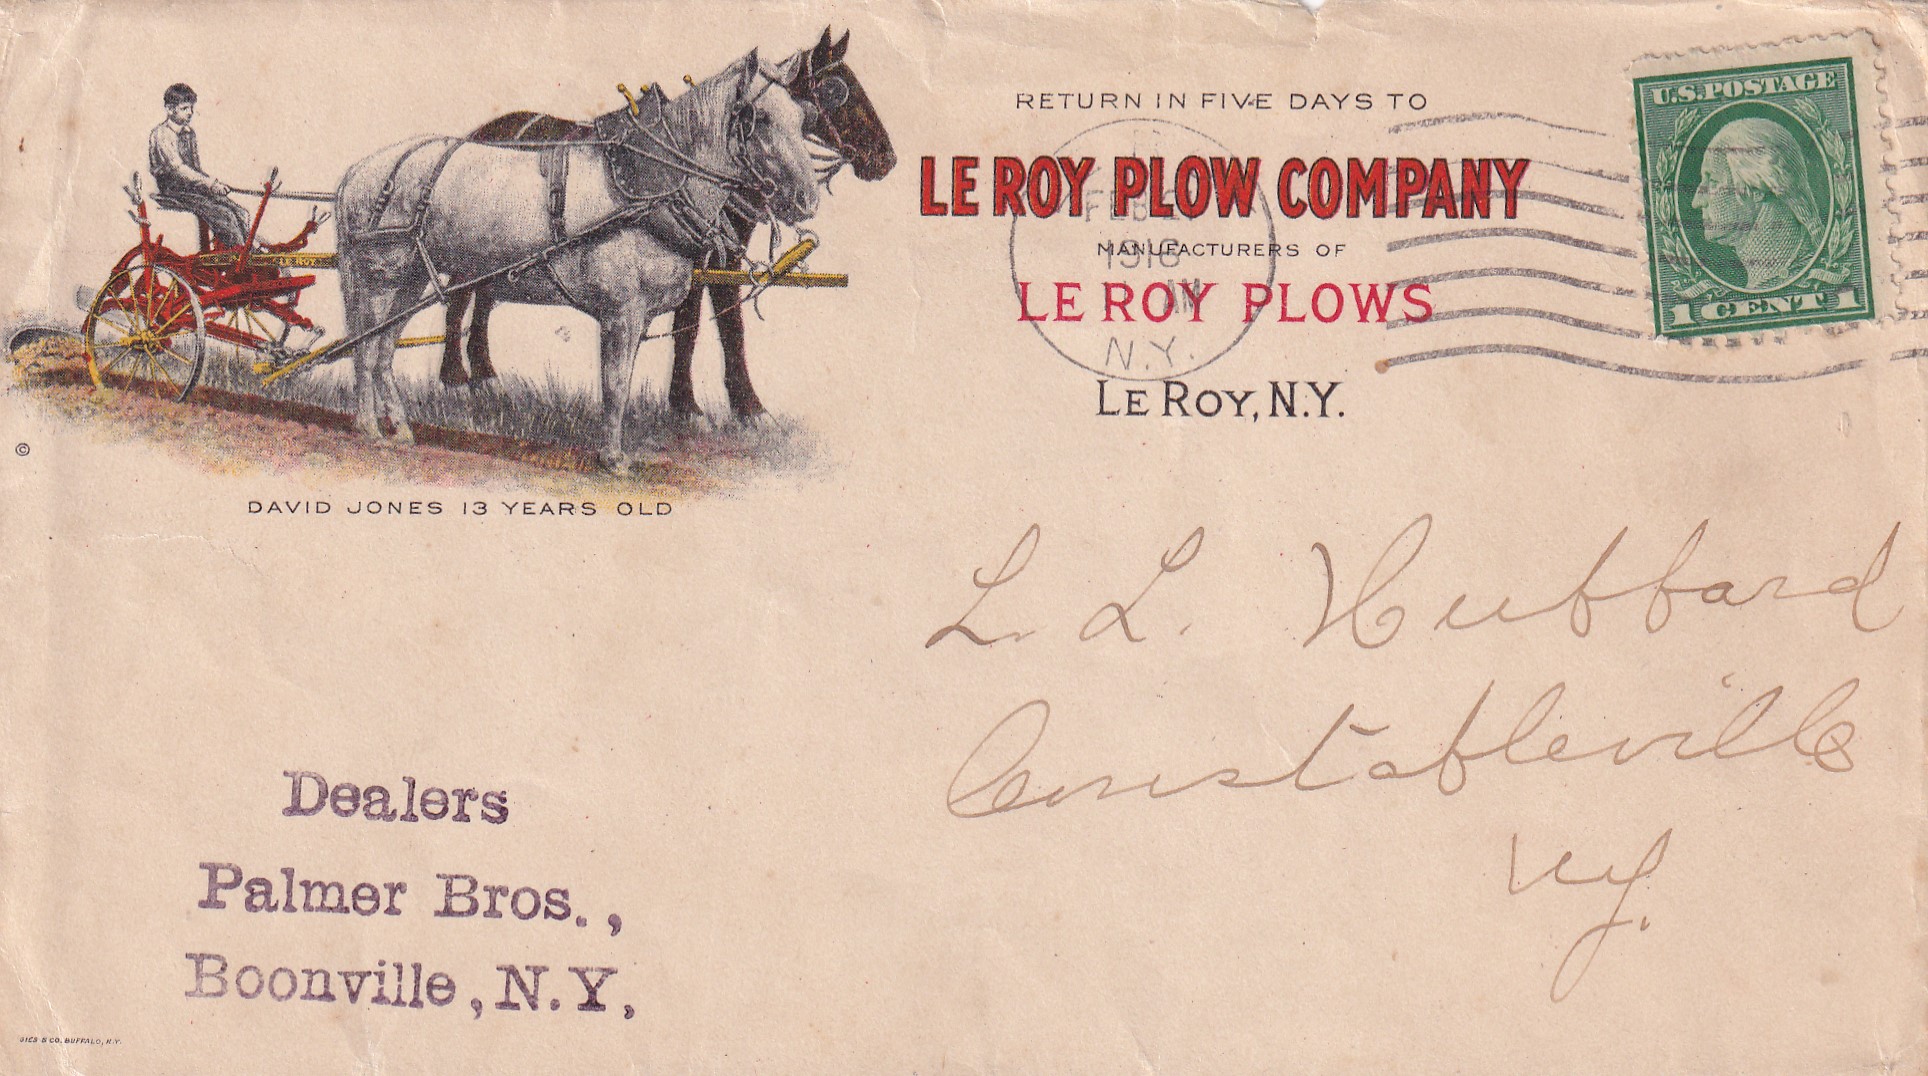 RETURN IN FIVE DAYS TO
LE ROY PLOW COMPANY
MANUFACTURERS OF
LE ROY PLOWS
LE ROY, N.Y.
FEB
1918
AM
N.Y.
U.S. POSTAGE
1 CENT 1
LE ROY
©
DAVID JONES 13 YEARS OLD
L. L. Hubbard
Constableville
N.Y.
Dealers
Palmer Bros.,
Boonville, N.Y,
& CO. BUFFALO, N.Y.